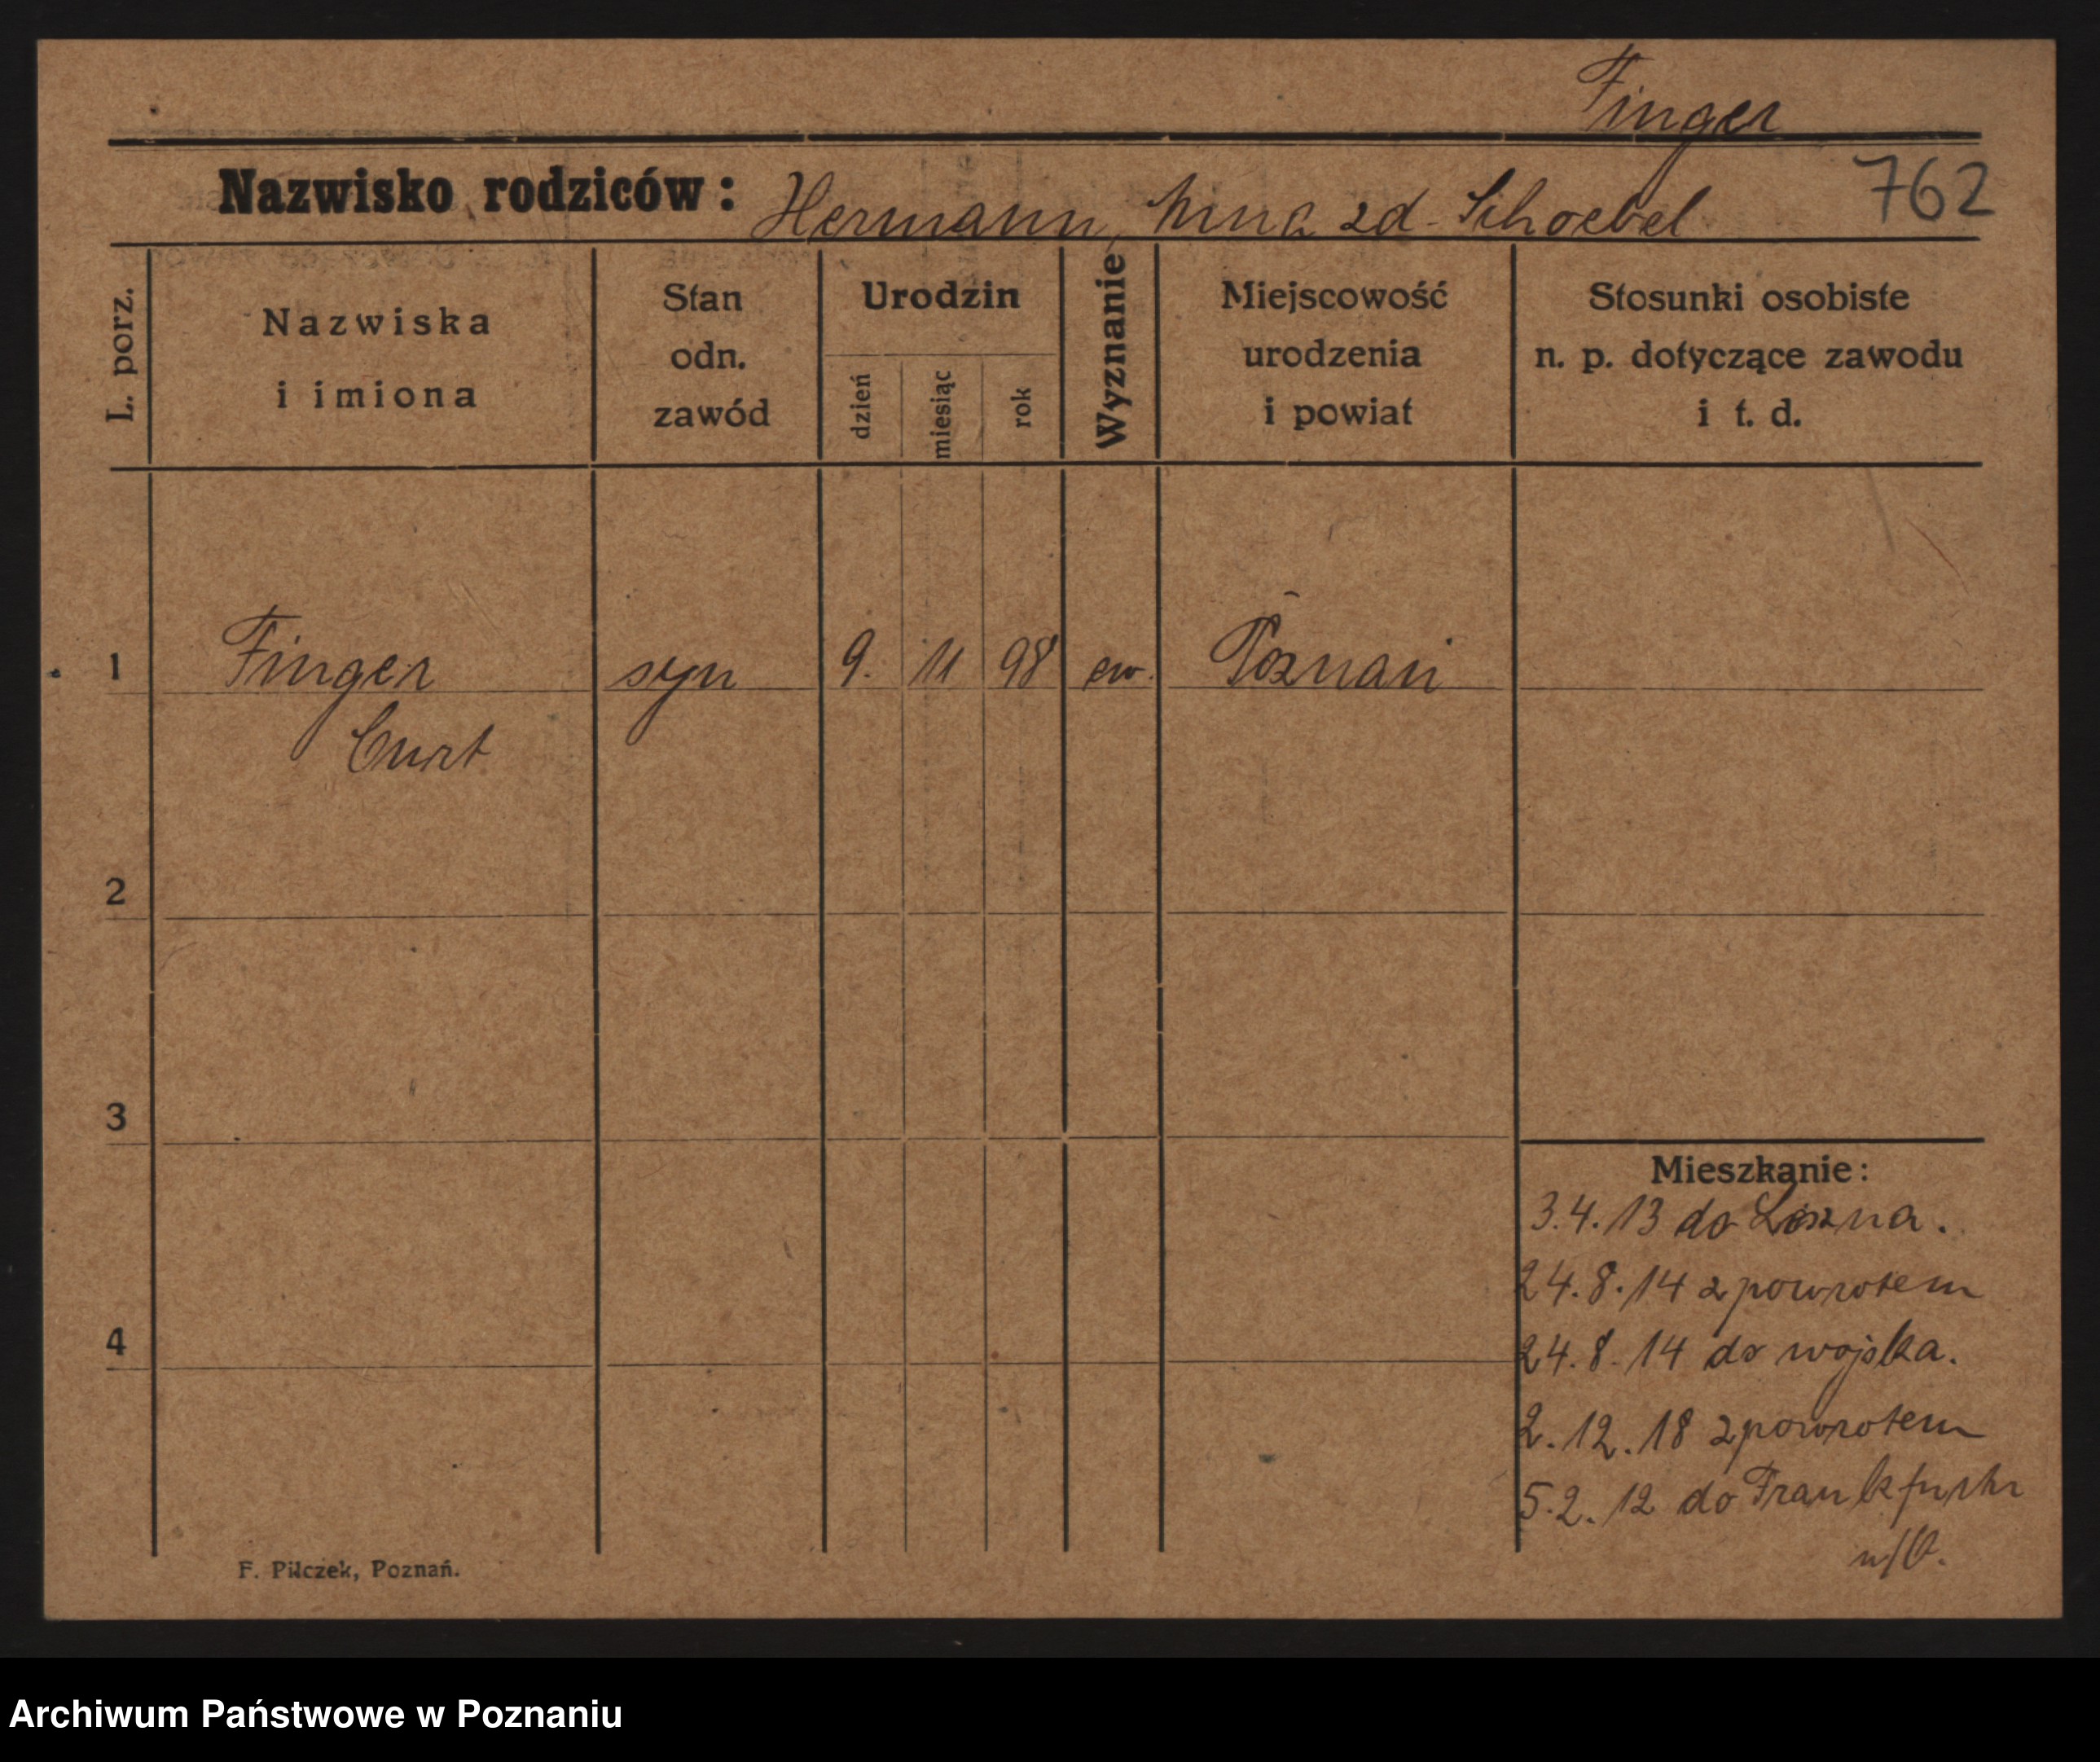 Finger
Nazwisko rodziców: Hermann, zd. Schoebel
762
L. porz.
Nazwiska
i imiona
Stan
odn.
zawód
Urodzin
dzień
miesiąc
rok
Wyznanie
Miejscowość
urodzenia
i powiat
Stosunki osobiste
n. p. dotyczące zawodu
i t. d.
1 Finger syn 9. 11 98 ew. Poznań
Curt
2
3
4
Mieszkanie:
3.4.13 do Leszna.
24.8.14 z powrotem
24.8.14 do wojska.
2.12.18 z powrotem
5.2.12 do Frankfurtu
n/O.
F. Pilczek, Poznań.
Archiwum Państwowe w Poznaniu